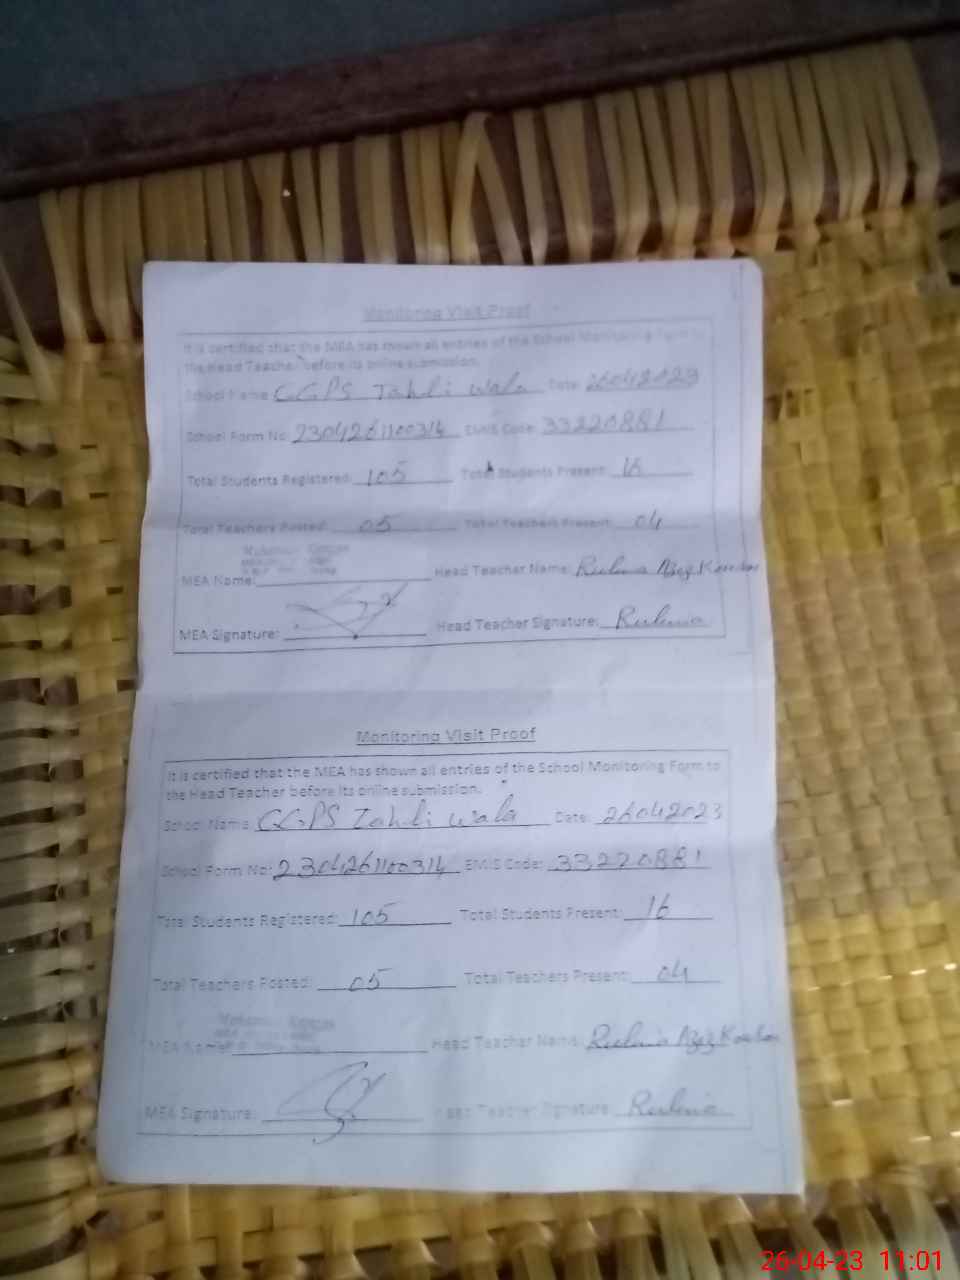 Monitoring Visit Proof
It is certified that the MEA has shown all entries of the School Monitoring Form to
the Head Teacher before its online submission.
School Name GGPS Tahli Wala Date: 26042023
School Form No: 2304261100314 EMIS Code: 33220881
Total Students Registered: 105 Total Students Present: 16
Total Teachers Posted: 05 Total Teachers Present: 04
MEA Name: Head Teacher Name:
MEA Signature: Head Teacher Signature:
Monitoring Visit Proof
It is certified that the MEA has shown all entries of the School Monitoring Form to
the Head Teacher before its online submission.
School Name GGPS Tahli Wala Date: 26042023
School Form No: 2304261100314 EMIS Code: 33220881
Total Students Registered: 105 Total Students Present: 16
Total Teachers Posted: 05 Total Teachers Present: 04
MEA Name: Head Teacher Name:
MEA Signature: Head Teacher Signature:
26-04-23 11:01